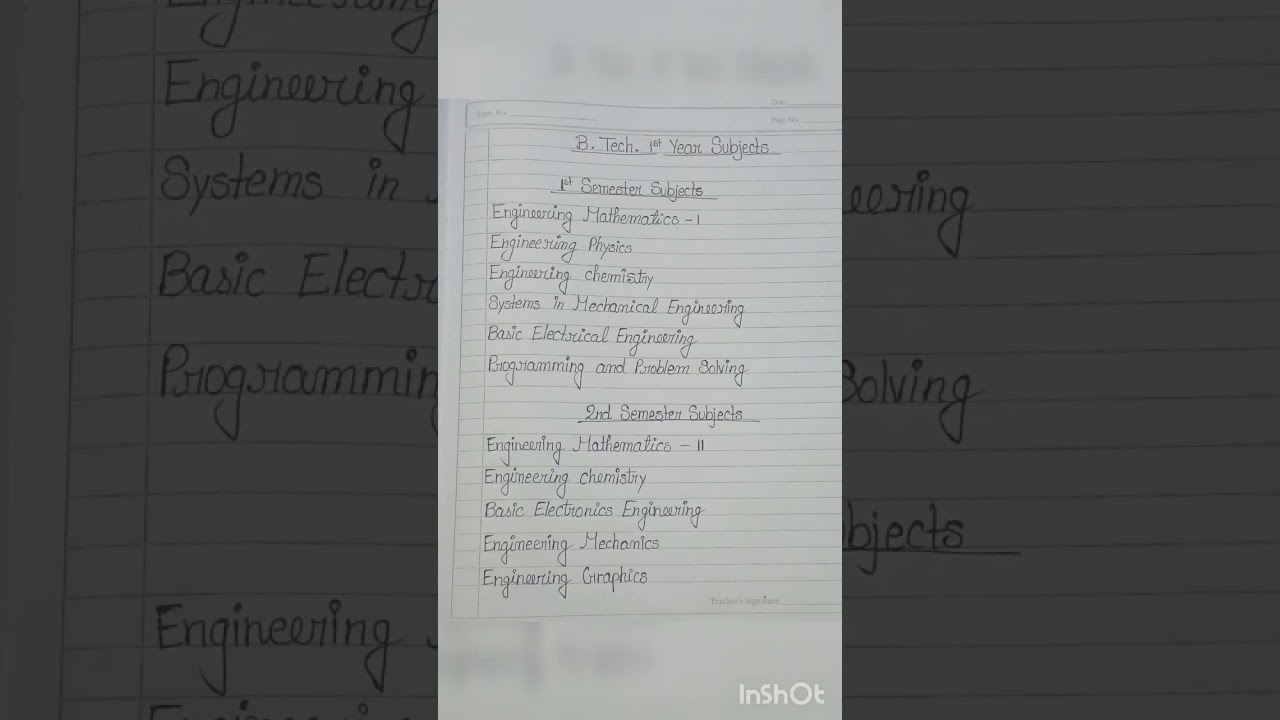 Expt. No.
Date
Page No.
B. Tech. 1st Year Subjects
1st Semester Subjects
Engineering Mathematics - I
Engineering Physics
Engineering chemistry
Systems in Mechanical Engineering
Basic Electrical Engineering
Programming and Problem Solving
2nd Semester Subjects
Engineering Mathematics - II
Engineering chemistry
Basic Electronics Engineering
Engineering Mechanics
Engineering Graphics
Teacher's Signature
InShOt